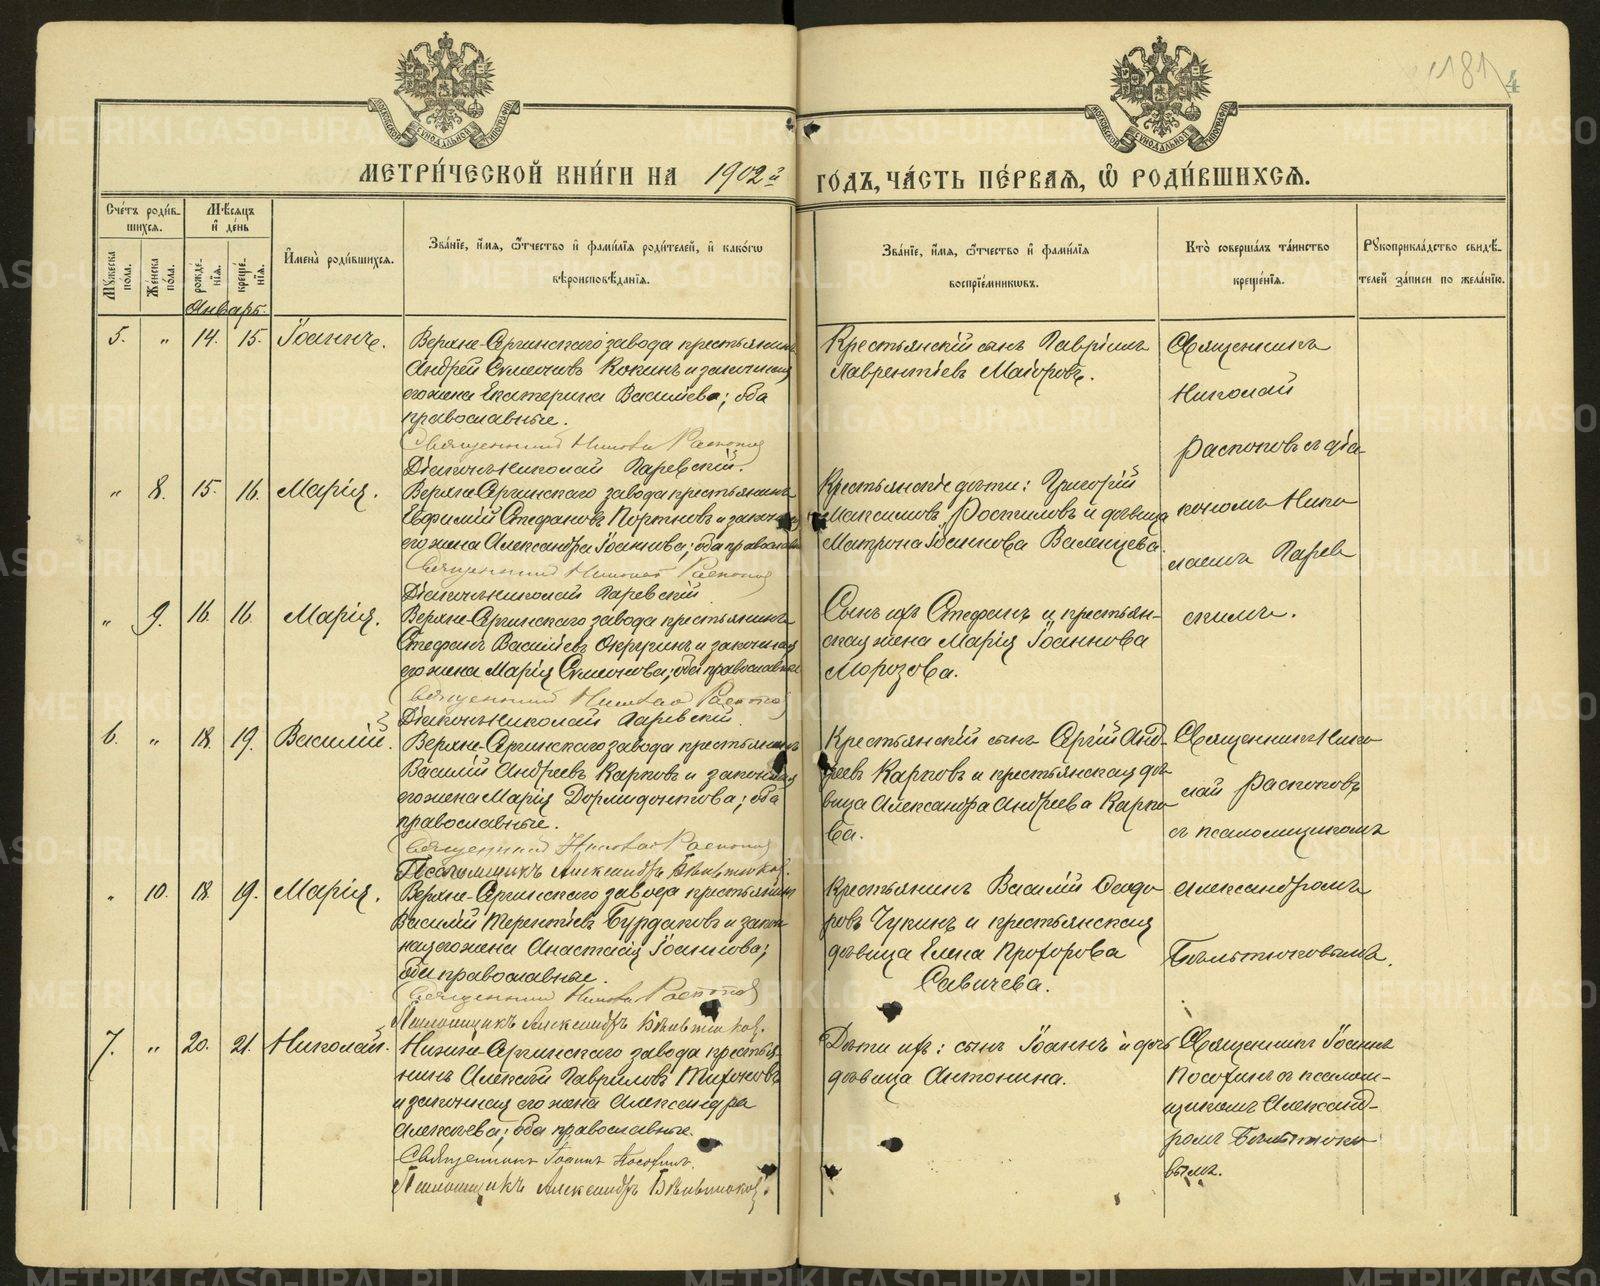 181
4
МОСКОВСКОЙ СѴНОДАЛЬНОЙ ТИПОГРАФІИ
МОСКОВСКОЙ СѴНОДАЛЬНОЙ ТИПОГРАФІИ
МЕТРИ́ЧЕСКОЙ КНИ́ГИ НА 1902й ГОДЪ, ЧА́СТЬ ПЕ́РВАЯ, Ѡ РОДИ́ВШИХСЯ.
Сче́тъ роди́в-
шихся.
Мѣ́сяцъ
и҆ де́нь
Мꙋ́жеска по́ла.
Же́нска по́ла.
рожде́-
нїя.
креще́-
нїя.
И҆мена̀ роди́вшихся.
Зва́нїе, и҆́мя, ѻ҆́тчество и҆ фами́лїя роди́телей, и҆ како́гѡ
вѣроисповѣ́данїя.
Зва́нїе, и҆́мя, ѻ҆́тчество и҆ фами́лїя
воспрїе́мникѡвъ.
Кто̀ соверша́лъ та́инство
креще́нїя.
Рꙋкоприкла́дство свидѣ́-
телей за́писи по жела́нїю.
Январь.
5. „ 14. 15. Іоаннъ.
Верхне-Сергинскаго завода крестьянинъ
Андрей Симеоновъ Кокинъ и законная
его жена Екатерина Васильева; оба
православные.
Священникъ Николай Распопов
Діаконъ Николай Царевскій.
Крестьянскій сынъ Гавріилъ
Лаврентіевъ Маіоровъ.
Священникъ
Николай
Распоповъ съ діа-
кономъ Нико
лаемъ Царев
скимъ.
„ 8. 15. 16. Марія.
Верхне-Сергинскаго завода крестьянинъ
Евфимій Стефановъ Портновъ и законная
его жена Александра Іоаннова; оба православные
Священникъ Николай Распопов
Діаконъ Николай Царевскій
Крестьянскіе дѣти: Григорій
Максимовъ Роспиловъ и дѣвица
Матрона Іоаннова Валенцева.
„ 9. 16. 16. Марія.
Верхне-Сергинскаго завода крестьянинъ
Стефанъ Васильевъ и законная
его жена Марія Симеонова; оба православные
Священникъ Николай Распопов
Діаконъ Николай Царевскій.
Сынъ ихъ Стефанъ и крестьян-
ская жена Марія Іоаннова
Морозова.
6. „ 18. 19. Василій.
Верхне-Сергинскаго завода крестьянинъ
Василій Андреевъ Карповъ и законная
его жена Марія Дормидонтова; оба
православные.
Священникъ Николай Распопов
Псаломщикъ Александръ Бѣльтюков.
Крестьянскій сынъ Сергій Анд-
реевъ Карповъ и крестьянская дѣ-
вица Александра Андреева Карпо
ва.
Священникъ Нико
лай Распоповъ
съ псаломщикомъ
Александромъ
Бѣльтюковымъ.
„ 10. 18. 19. Марія.
Верхне-Сергинскаго завода крестьянинъ
Василій Терентіевъ Бурдаковъ и закон
ная его жена Анастасія Іоаннова;
оба православные.
Священникъ Николай Распопов
Псаломщикъ Александръ Бѣльтюков.
Крестьянинъ Василій Ѳеодо
ровъ Чукинъ и крестьянская
дѣвица Елена Прохорова
Савичева.
7. „ 20. 21. Николай.
Нижне-Сергинскаго завода крестья-
нинъ Алексѣй Гавриловъ Тихоновъ
и законная его жена Александра
Алексѣева; оба православные.
Священникъ Іоаннъ
Псаломщикъ Александръ Бѣльтюков.
Дѣти ихъ: сынъ Іоаннъ и дочь
дѣвица Антонина.
Священникъ Іоаннъ
съ псалом-
щикомъ Александ-
ромъ Бѣльтюко
вымъ.